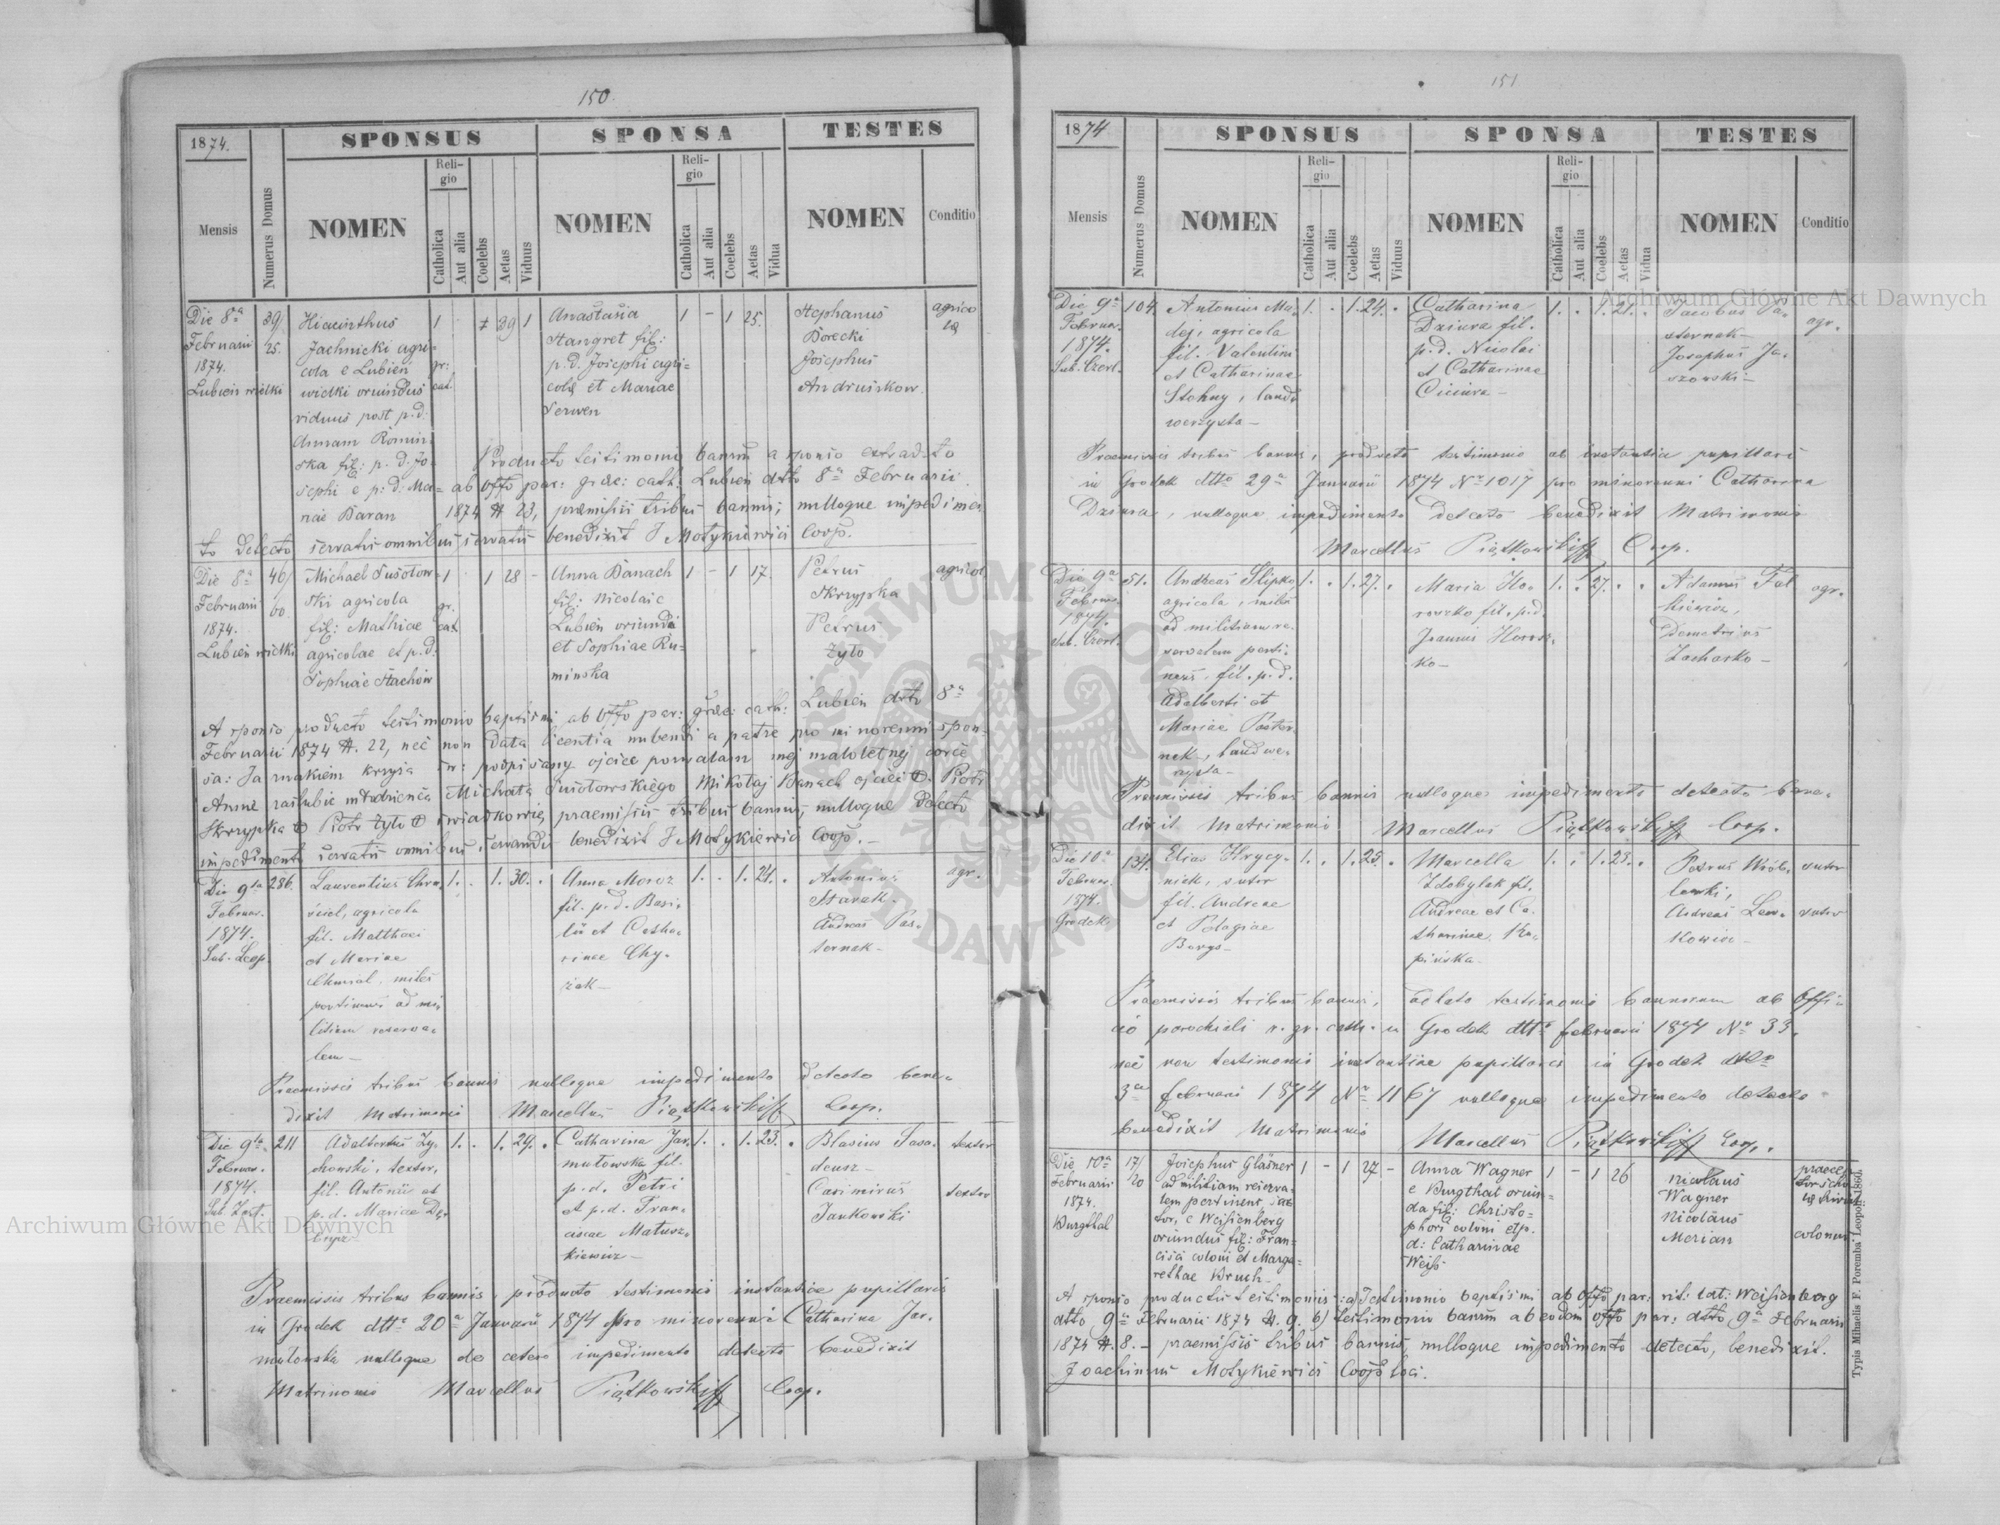 150.
1874.
SPONSUS
SPONSA
TESTES
Mensis
Numerus Domus
NOMEN
Religio
Catholica
Aut alia
Coelebs
Aetas
Viduus
NOMEN
Religio
Catholica
Aut alia
Coelebs
Aetas
Vidua
NOMEN
Conditio
Die 8a
Februarii
1874.
Lubień wielki
39/
25.
Hiacinthus
Jachnicki agri-
cola e Lubień
wielki oriundus
viduus post p.d.
Annam Romin-
ska fil: p. d. Jo-
sephi e p: d: Ma-
riae Baran
1
gr:
cat.
39 1
Anastasia
Hangret fil:
p. d. Josephi agri-
colae et Mariae
Serwen
1 - 1 25.
Stephanus
Borecki
Josephus
Andruskow.
agrico
lae
Producto testimonio bannor a sponso extradito
ab Offo par: graec: cath: Lubień dtto 8a Februarii
1874 N 23, praemissis tribus bannis, nulloque impedimen
to detecto servatis omnibus servandis benedixit J Motykiewicz Coop.
Die 8a
Februarii
1874.
Lubień wielki
46/
60.
Michael Susołow-
ski agricola
fil: Mathiae
agricolae et p.d.
Sophiae Stachów
1
gr.
cat
1 28 -
Anna Banach
fil: Nicolai e
Lubień oriundi
et Sophiae Ru-
minska
1 - 1 17.
Petrus
Skrzypka
Petrus
Żyło
agricol.
A sponso producto testimonio baptismi ab Offo par: graec: cath: Lubień dtto 8a
Februarii 1874 N. 22, nec non data licentia nubendi a patre pro minorenni spon-
sa: Ja znakiem krzyża św: podpisany ojciec pozwalam mej małoletniej córce
Annie zaślubić młodzieńca Michała Susołowskiego Mikołaj Banach ojciec +. Piotr
Skrzypka + Piotr Żyło + świadkowie, praemissis tribus bannis, nulloque detecto
impedimento servatis omnibus servandis benedixit J Motykiewicz Coop. -
Die 9ta
Februar.
1874.
Sub. Leop.
286.
Laurentius Chmu-
agricola
fil. Matthaei
et Mariae
Chmiel, miles
pertinens ad mi-
litiam reserva-
lem -
1. . 1. 30. .
Anna Moroz
fil. p.d. Basi-
lii et Catha-
rinae Chy-
żak -
1. . 1. 21. .
Antonius
Stasak.
Andreas Pas-
ternak -
agr.
Praemissis tribus bannis nulloque impedimento detecto bene-
dixit Matrimonio Marcellus Piątkowski Coop.
Die 9ta
Februar.
1874.
211
Adalbertus Zy-
chowski, textor,
fil. Antonii et
p.d. Mariae
1. . 1. 29. .
Catharina Jar-
mułowska fil.
p.d. Petri
et p.d. Fran-
ciscae Matusz-
kiewicz -
1. . 1. 23. .
Blasius Tasa-
deusz -
Casimirus
Jankowski
textor
textor
Praemissis tribus bannis, producto testimonio instantiae pupillaris
in Grodek dtto 20a Januarii 1874 pro minorenni Catharina Jar-
mułowska nulloque de cetero impedimento detecto benedixit
Matrimonio Marcellus Piątkowski Coop.
151
1874
SPONSUS
SPONSA
TESTES
Mensis
Numerus Domus
NOMEN
Religio
Catholica
Aut alia
Coelebs
Aetas
Viduus
NOMEN
Religio
Catholica
Aut alia
Coelebs
Aetas
Vidua
NOMEN
Conditio
Die 9a
Februar.
1874.
Sub. Czerl.
104.
Antonius Ma-
dej, agricola
fil. Valentini
et Catharinae
Stohny, land-
werzysta -
1. . 1. 24. .
Catharina
Dziura fil.
p.d. Nicolai
et Catharinae
Ciciura -
1. . 1. 21. .
Jacobus Pa-
sternak -
Josephus Ja-
szowski -
agr.
Praemissis tribus bannis, producto testimonio ab instantia pupillari
in Grodek dtto 29a Januarii 1874 No 1017 pro minorenni Catharina
Dziura, nulloque impedimento detecto benedixit Matrimonio
Marcellus Piątkowski Coop.
Die 9a
Februar.
1874.
Sub. Czerl.
51.
Andreas Slipko,
agricola, miles
ad militiam re-
servalem perti-
nens, fil. p.d.
Adalberti et
Mariae Paster-
nak, landwe-
rzysta -
1. . 1. 27. .
Maria Ho-
roszko fil. p.d.
Joannis Horosz-
ko -
1. . 27. . .
Adamus Fal
kiewicz,
Demetrius
Zacharko -
agr.
Praemissis tribus bannis nulloque impedimento detecto bene-
dixit Matrimonio Marcellus Piątkowski Coop.
Die 10a
Februar.
1874.
Grodek
134.
Elias Hrycy-
niak, sutor
fil. Andreae
et Pelagiae
1. . 1. 25. .
Marcella
Zdobylak fil.
Andreae et Ca-
tharinae
1. . 1. 21. .
Petrus Wrób-
lewski,
Andreas Lew-
kowicz -
sutor
sutor
Praemissis tribus bannis, adlato testimonio bannorum ab Offi-
cio parochiali r. gr. cath. in Grodek dtto februarii 1874 No 33.
nec non testimonio instantiae pupillaris in Grodek dtto
3a februarii 1874 No 1167 nulloque impedimento detecto
benedixit Matrimonio Marcellus Piątkowski Coop.
Die 10a
Februarii
1874.
Burgthal
17/
20
Josephus Glasner
ad militiam reserva-
lem pertinens
e Weissenberg
oriundus fil: Fran-
cisci coloni et Marga-
rethae Bruch -
1 - 1 27 -
Anna Wagner
e Burgthal oriun-
da fil: Christo-
phori coloni et p.
d: Catharinae
Weiß
1 - 1 26
Nicolaus
Wagner
Nicolaus
Merian
colonus
A sponso productis testimoniis: a) Testimonio baptismi ab Offo par: rit: lat: Weissenberg
dtto 9a Februarii 1874 N. 9. b) testimonio bannor ab eodem Offo par: dtto 9a Februarii
1874 N. 8. - praemissis tribus bannis, nulloque impedimento detecto, benedixit.
Joachimus Motykiewicz Coop loci.
Typis Mihaelis F. Poremba Leopoli 1860.
Archiwum Główne Akt Dawnych
Archiwum Główne Akt Dawnych
ARCHIWUM GŁÓWNE
AKT DAWNYCH